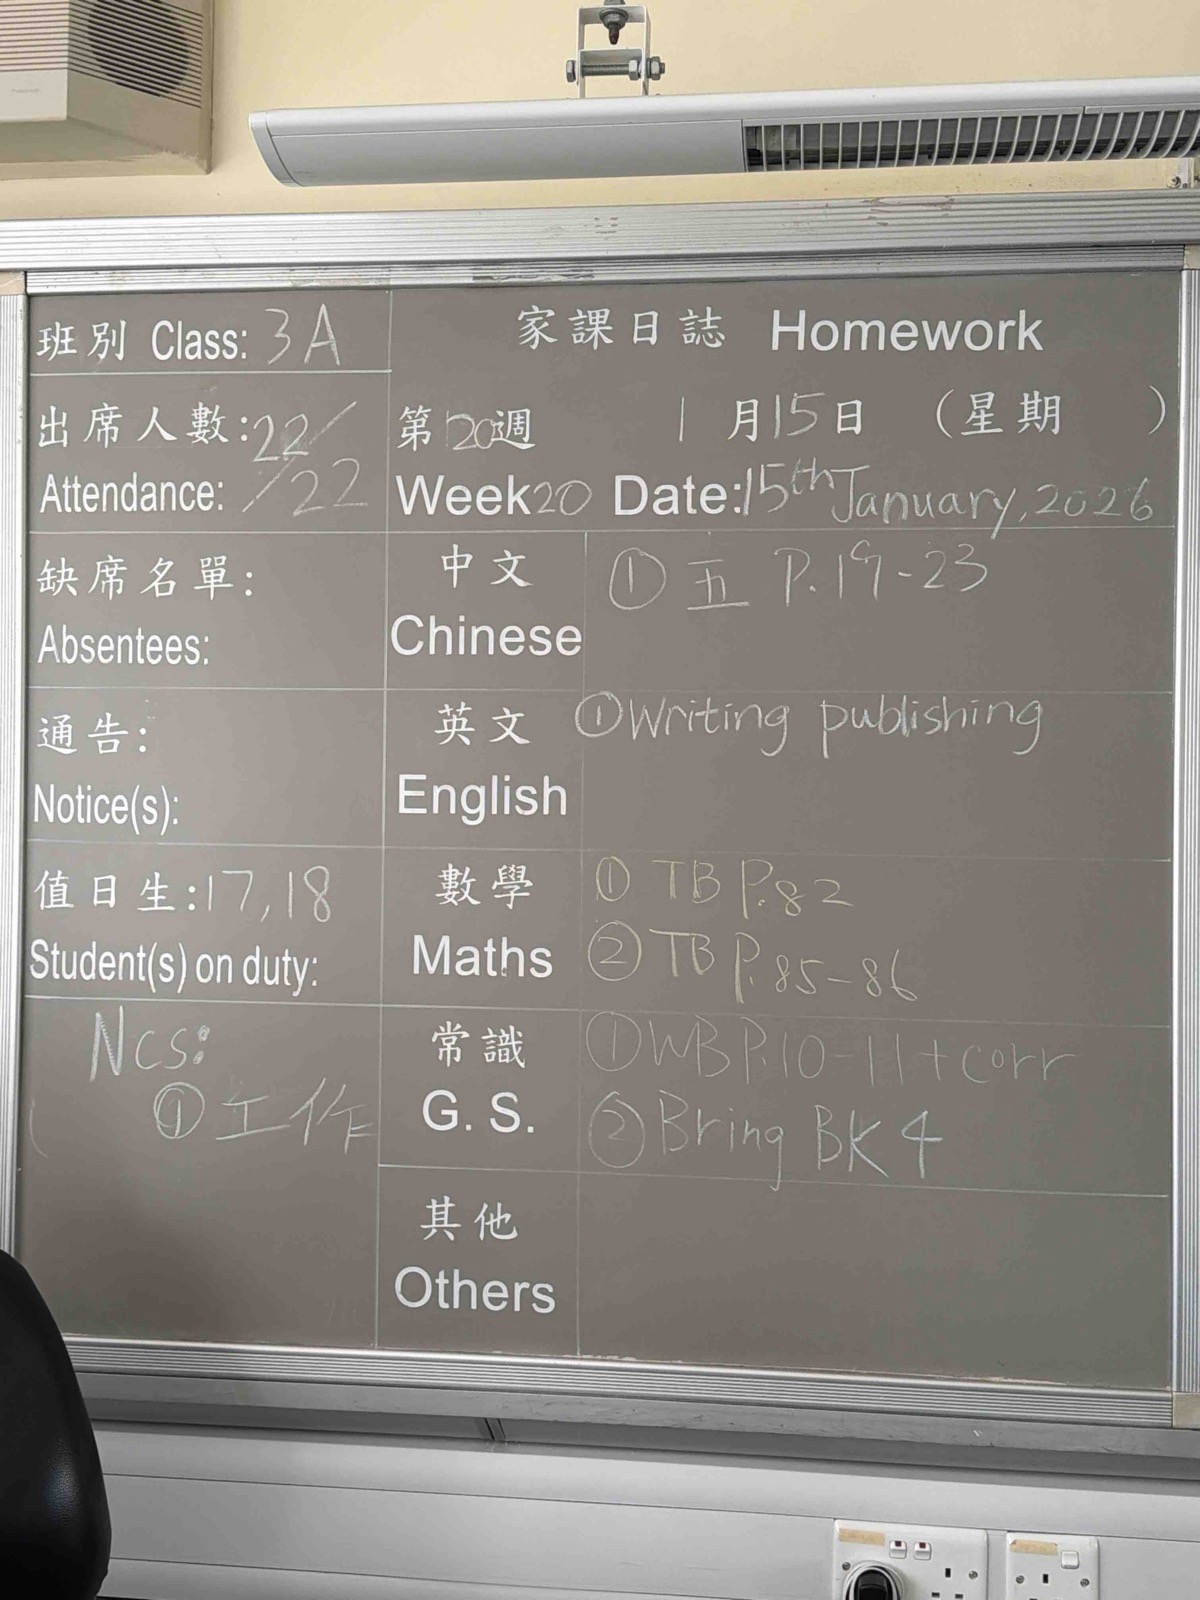 班別 Class: 3A
家課日誌 Homework
出席人數: 22/
Attendance: /22
第20週 1月15日 (星期 )
Week 20 Date: 15th January, 2026
缺席名單:
Absentees:
中文
Chinese
① 五 P.19-23
通告:
Notice(s):
英文
English
① Writing publishing
值日生: 17, 18
Student(s) on duty:
數學
Maths
① TB P.82
② TB P.85-86
Ncs:
① 工作
常識
G. S.
① WB P.10-11 + corr
② Bring BK 4
其他
Others